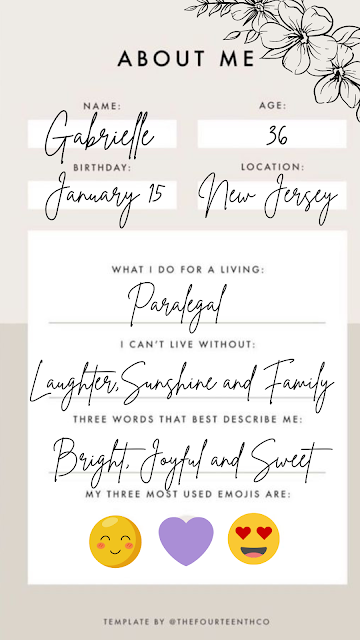 ABOUT ME
NAME:
AGE:
Gabrielle
36
BIRTHDAY:
LOCATION:
January 15
New Jersey
WHAT I DO FOR A LIVING:
Paralegal
I CAN'T LIVE WITHOUT:
Laughter, Sunshine and Family
THREE WORDS THAT BEST DESCRIBE ME:
Bright, Joyful and Sweet
MY THREE MOST USED EMOJIS ARE:
TEMPLATE BY @THEFOURTEENTHCO